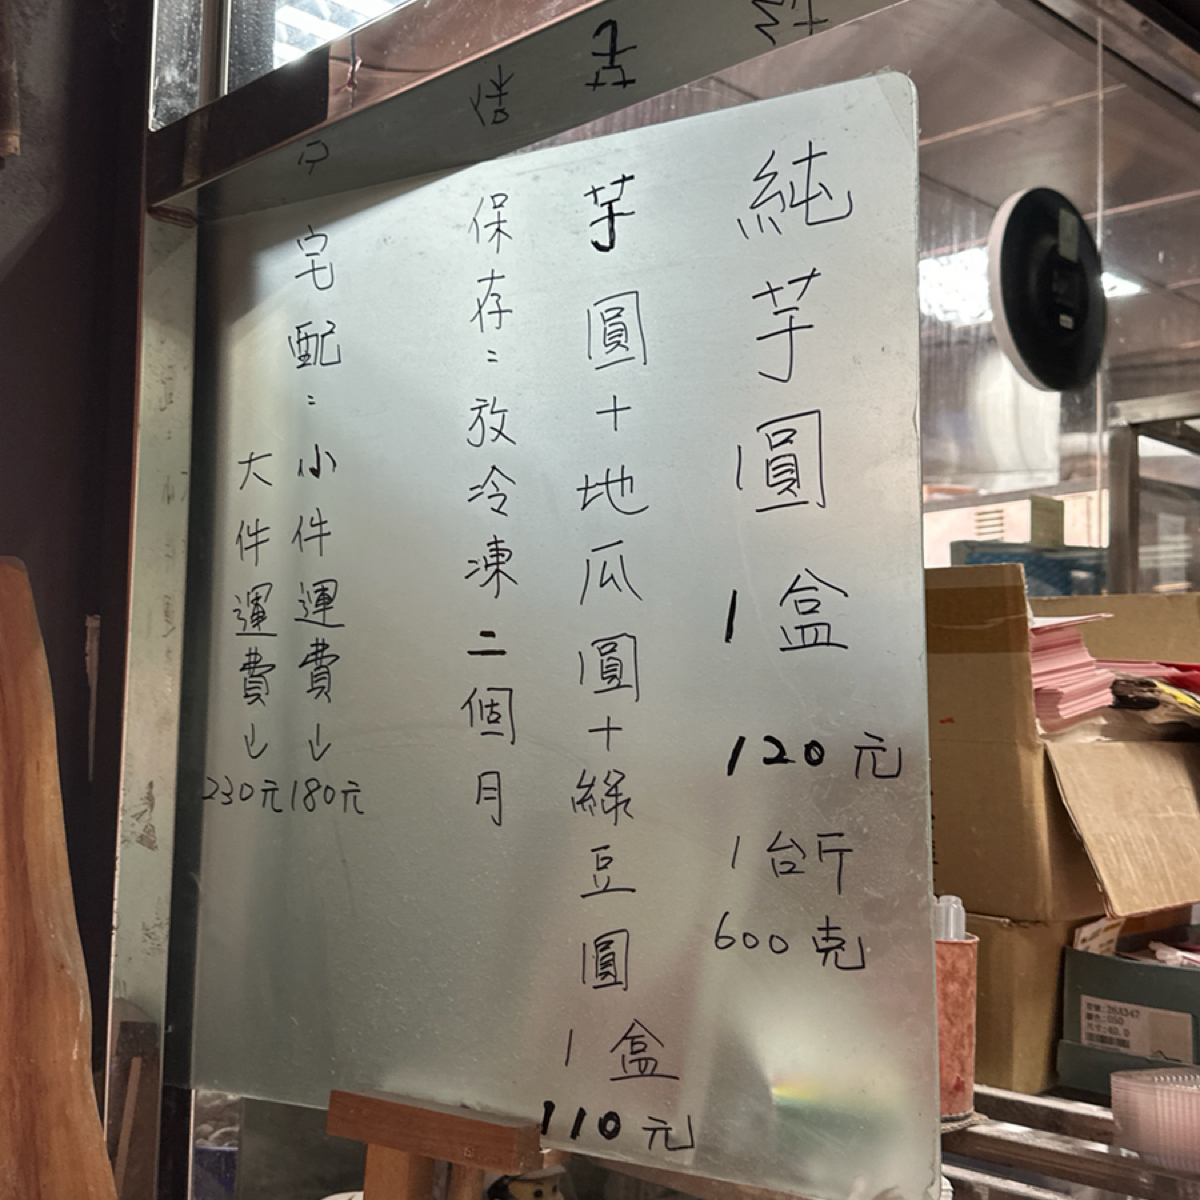 純芋圓1盒
120元
1台斤
600克
芋圓+地瓜圓+綠豆圓1盒
110元
保存:放冷凍二個月
宅配:小件運費↓
180元
大件運費↓
230元